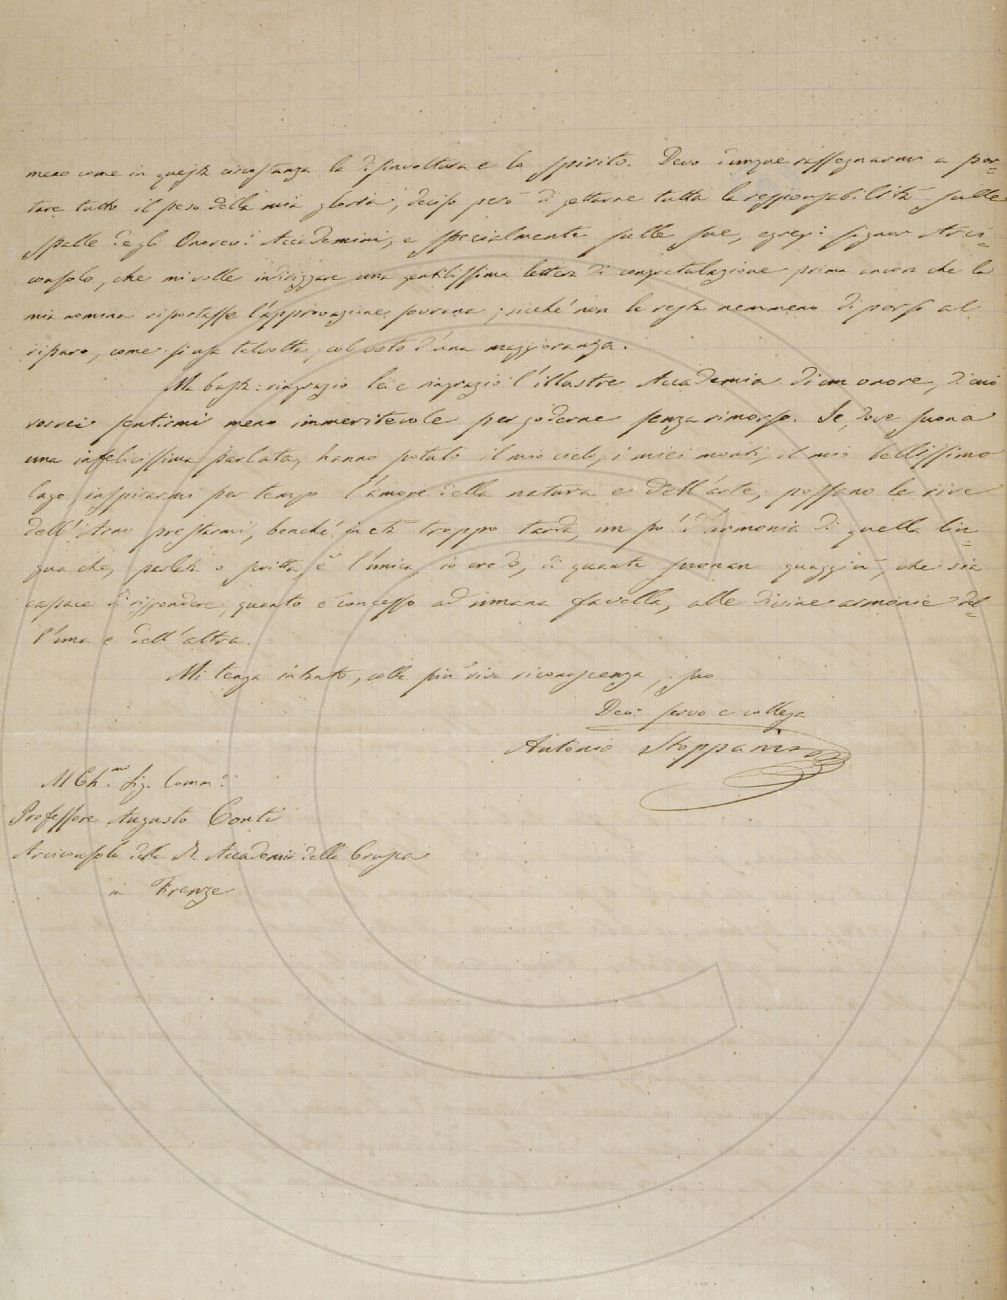 meno come in questa circostanza la disinvoltura e lo spirito. Devo dunque rassegnarmi a por=
tare tutto il peso della mia gloria, deciso però di gettarne tutta la responsabilità sulle
spalle degli Onorev.i Accademici, e specialmente sulle sue, egreg.o signor Arci=
consolo, che mi volle indirizzare una gentilissima lettera di congratulazione prima ancora che la
mia nomina riportasse l'approvazione sovrana; sicché non le resta nemmeno di porsi al
riparo, come si usa talvolta, col voto d'una maggioranza.
Ma basta: ringrazio lei e ringrazio l'illustre Accademia di un onore, di cui
vorrei sentirmi meno immeritevole per goderne senza rimorso. Se, dove suona
una infelicissima parlata, hanno potuto il mio cielo, i miei monti, il mio bellissimo
lago inspirarmi per tempo l'amore della natura e dell'arte, possano le rive
dell'Arno prestarmi, benché in età troppo tarda, un po' d'armonia di quella lin=
gua che, parlata o scritta, è l'unica, io credo, di quante suonan quaggiù, che sia
capace di rispondere, quanto è concesso ad umana favella, alle divine armonie del=
l'una e dell'altra.
Mi tenga intanto, colla più viva riconoscenza, suo
Dev.o servo e collega
Antonio Stoppani
Al Ch.mo Sig. Comm.e
Professore Augusto Conti
Arciconsolo della R. Accademia della Crusca
in Firenze